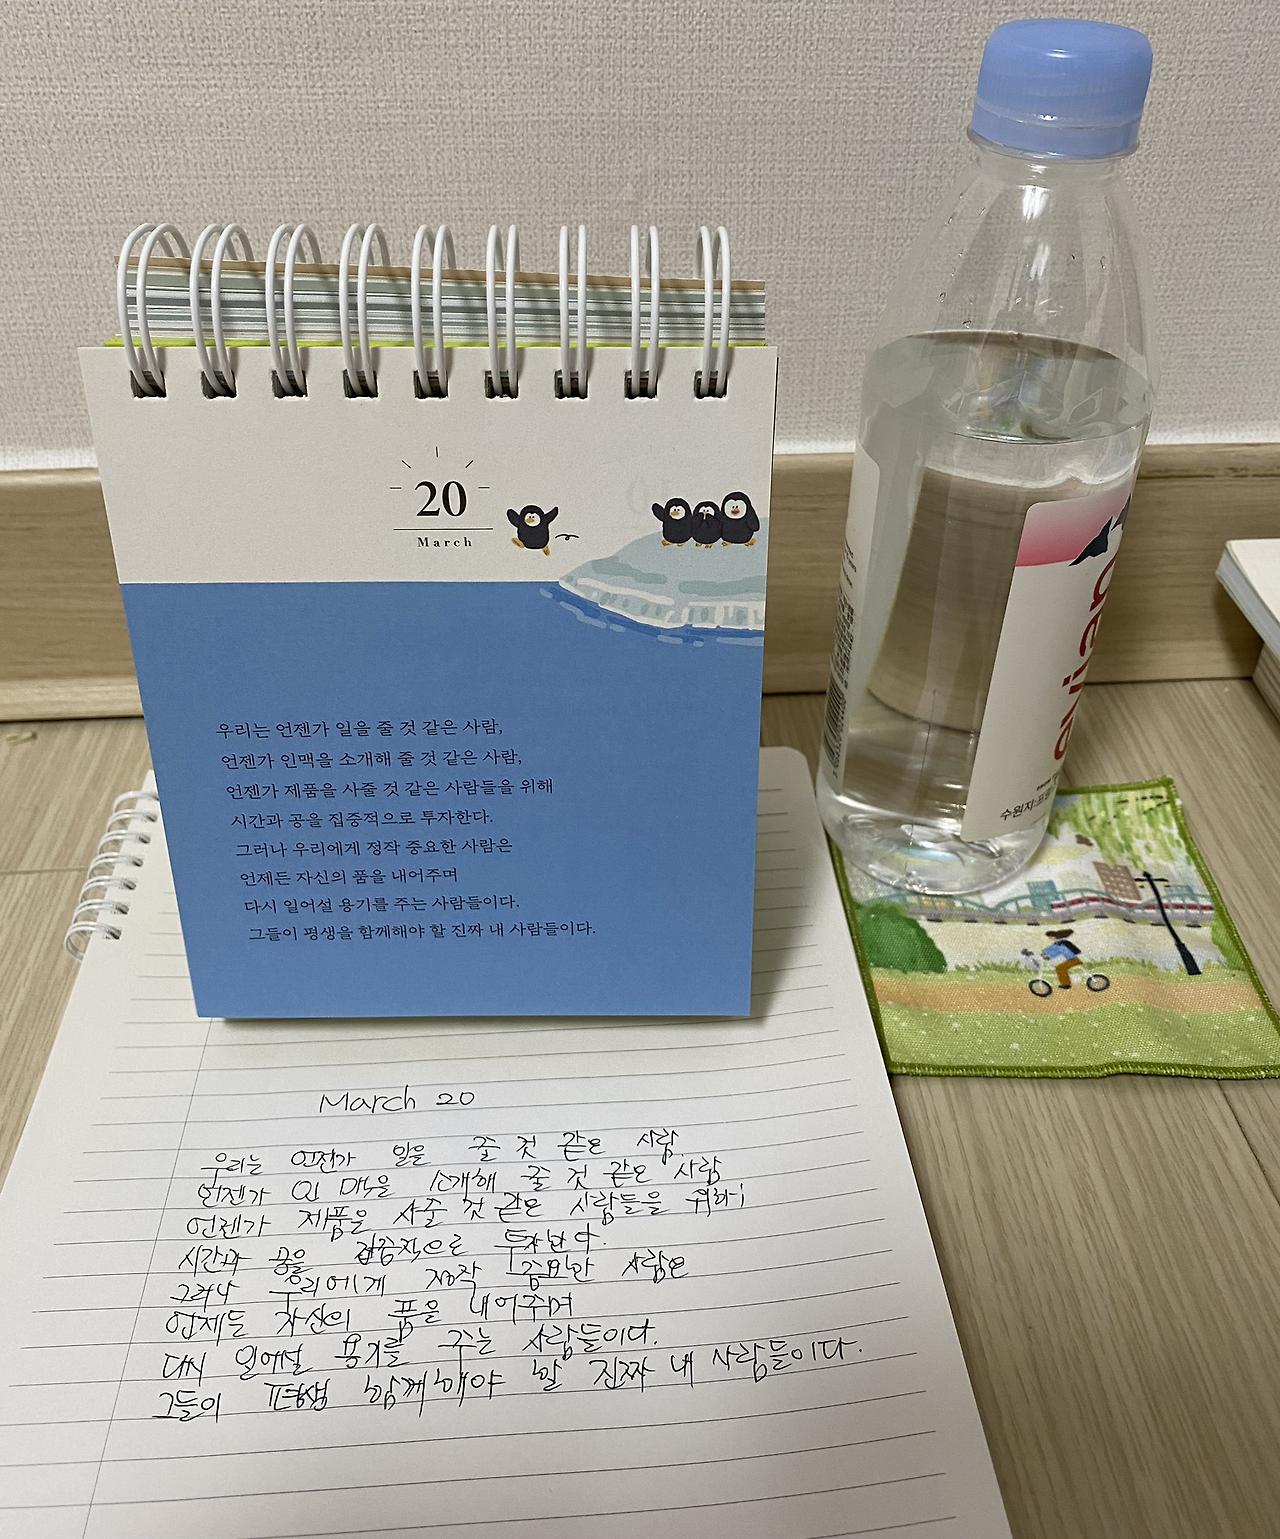 20
March
우리는 언젠가 일을 줄 것 같은 사람,
언젠가 인맥을 소개해 줄 것 같은 사람,
언젠가 제품을 사줄 것 같은 사람들을 위해
시간과 공을 집중적으로 투자한다.
그러나 우리에게 정작 중요한 사람은
언제든 자신의 품을 내어주며
다시 일어설 용기를 주는 사람들이다.
그들이 평생을 함께해야 할 진짜 내 사람들이다.
수원지:프랑
March 20
우리는 언젠가 일을 줄 것 같은 사람,
언젠가 인맥을 소개해 줄 것 같은 사람
언젠가 제품을 사줄 것 같은 사람들을 위해
시간과 공을 집중적으로 투자한다.
그러나 우리에게 정작 중요한 사람은
언제든 자신의 품을 내어주며
다시 일어설 용기를 주는 사람들이다.
그들이 평생 함께해야 할 진짜 내 사람들이다.